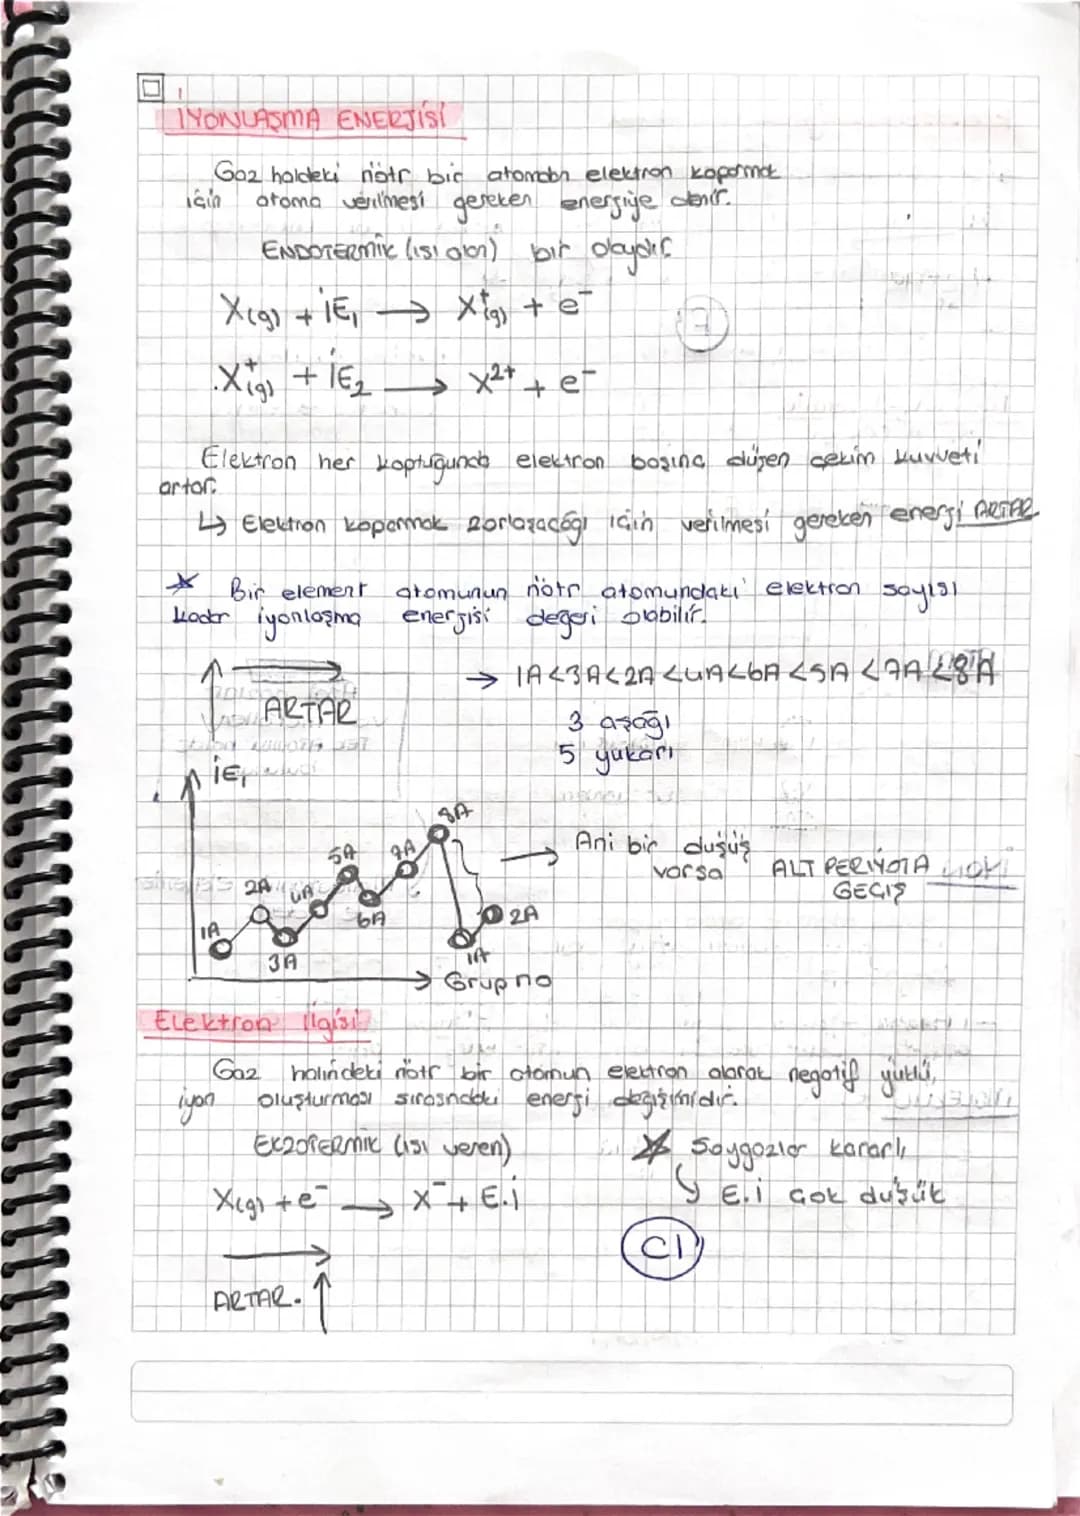 İYONLAŞMA ENERJİSİ
Gaz haldeki nötr bir atomdan elektron koparmak
için atoma verilmesi gereken enerjiye denir.
ENDOTERMİK (ısı alan) bir olaydır.
X(g) + İE₁ → X⁺(g) + e⁻
X⁺(g) + İE₂ → X²⁺ + e⁻
Elektron her koptuğunda elektron başına düşen çekim kuvveti
artar.
↳ Elektron koparmak zorlaşacağı için verilmesi gereken enerji ARTAR
* Bir element atomunun nötr atomundaki elektron sayısı
kadar iyonlaşma enerjisi değeri olabilir.
→ 1A<3A<2A<4A<6A<5A<7A<8A
ARTAR
3 aşağı
5 yukarı
İE₁
1A 2A 3A 4A 5A 6A 7A 8A 1A 2A
→ Ani bir düşüş
varsa ALT PERİYOTA
GEÇİŞ
Grup no
Elektron ilgisi
Gaz halindeki nötr bir atomun elektron alarak negatif yüklü
iyon oluşturması sırasındaki enerji değişimidir.
EKZOTERMİK (ısı veren)
* Soygazlar kararlı
X(g) + e⁻ → X⁻ + E.İ
↳ E.İ çok düşük
Cl
ARTAR.